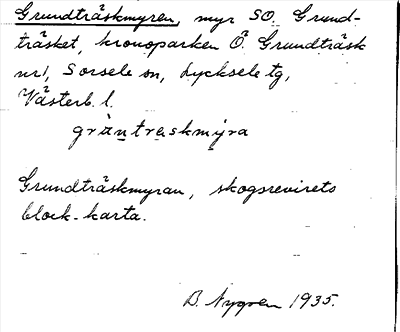 Grundträskmyren, myr SO. Grund-
träsket, kronoparken Ö. Grundträsk
nr 1, Sorsele sn, Lycksele tg,
Västerb. l.
gräntraskmýra
Grundträskmyran, skogsrevirets
block-karta.
B. Nygren 1935.